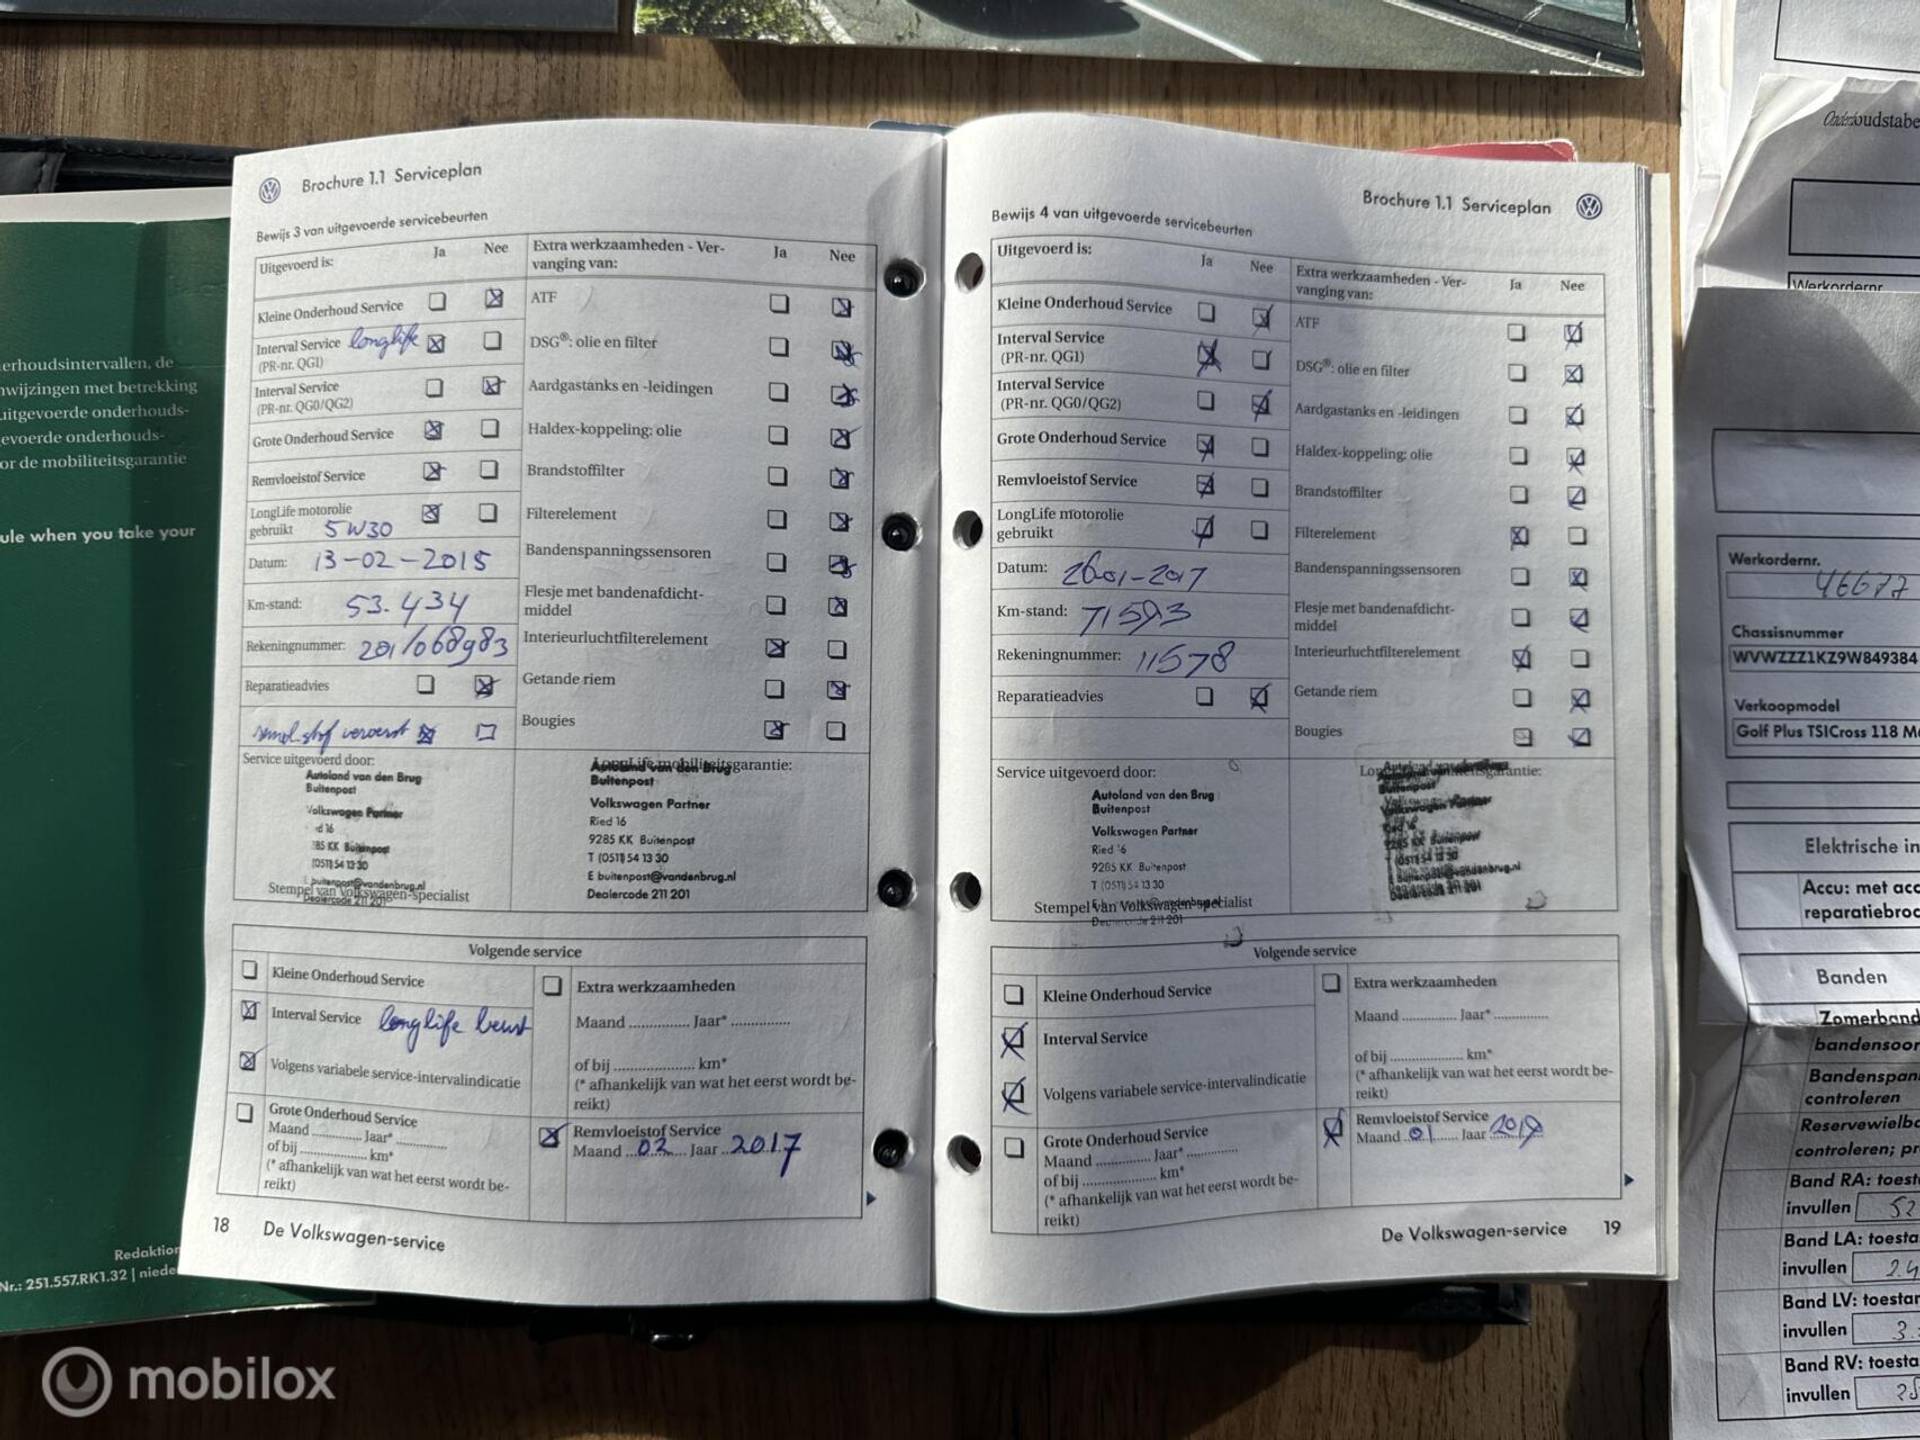 Brochure 1.1 Serviceplan
Bewijs 3 van uitgevoerde servicebeurten
Uitgevoerd is:
Ja
Nee
Extra werkzaamheden - Ver-
vanging van:
Ja
Nee
Kleine Onderhoud Service
Interval Service longlife
(PR-nr. QG1)
Interval Service
(PR-nr. QG0/QG2)
Grote Onderhoud Service
Remvloeistof Service
LongLife motorolie
gebruikt 5W30
Datum: 13-02-2015
Km-stand: 53.434
Rekeningnummer: 201/068983
Reparatieadvies
ATF
DSG®: olie en filter
Aardgastanks en -leidingen
Haldex-koppeling: olie
Brandstoffilter
Filterelement
Bandenspanningssensoren
Flesje met bandenafdicht-
middel
Interieurluchtfilterelement
Getande riem
Bougies
Service uitgevoerd door:
Autoland van den Brug
Buitenpost
Volkswagen Partner
d 16
85 KK Buitenpost
(0511) 54 13 30
buitenpost@vandenbrug.nl
Stempel van Volkswagen-specialist
Dealercode 211 201
LongLife mobiliteitsgarantie:
Autoland van den Brug
Buitenpost
Volkswagen Partner
Ried 16
9285 KK Buitenpost
T (0511) 54 13 30
E buitenpost@vandenbrug.nl
Dealercode 211 201
Volgende service
Kleine Onderhoud Service
Interval Service longlife beurt
Volgens variabele service-intervalindicatie
Grote Onderhoud Service
Maand ............ Jaar* ............
of bij .................... km*
(* afhankelijk van wat het eerst wordt be-
reikt)
Extra werkzaamheden
Maand ............... Jaar* ...............
of bij .................... km*
(* afhankelijk van wat het eerst wordt be-
reikt)
Remvloeistof Service
Maand 02 Jaar 2017
18 De Volkswagen-service
Brochure 1.1 Serviceplan
Bewijs 4 van uitgevoerde servicebeurten
Uitgevoerd is:
Ja
Nee
Extra werkzaamheden - Ver-
vanging van:
Ja
Nee
Kleine Onderhoud Service
Interval Service
(PR-nr. QG1)
Interval Service
(PR-nr. QG0/QG2)
Grote Onderhoud Service
Remvloeistof Service
LongLife motorolie
gebruikt
Datum: 26-01-2017
Km-stand: 71593
Rekeningnummer: 11578
Reparatieadvies
ATF
DSG®: olie en filter
Aardgastanks en -leidingen
Haldex-koppeling: olie
Brandstoffilter
Filterelement
Bandenspanningssensoren
Flesje met bandenafdicht-
middel
Interieurluchtfilterelement
Getande riem
Bougies
Service uitgevoerd door:
Autoland van den Brug
Buitenpost
Volkswagen Partner
Ried 16
9285 KK Buitenpost
T (0511) 54 13 30
Stempel van Volkswagen-specialist
Volgende service
Kleine Onderhoud Service
Interval Service
Volgens variabele service-intervalindicatie
Grote Onderhoud Service
Maand ............ Jaar* ............
of bij .................... km*
(* afhankelijk van wat het eerst wordt be-
reikt)
Extra werkzaamheden
Maand ............... Jaar* ...............
of bij .................... km*
(* afhankelijk van wat het eerst wordt be-
reikt)
Remvloeistof Service
Maand 01 Jaar 2019
De Volkswagen-service 19
erhoudsintervallen, de
nwijzingen met betrekking
uitgevoerde onderhouds-
evoerde onderhouds-
or de mobiliteitsgarantie
ule when you take your
Redaktion
Nr.: 251.557.RK1.32 | niede
Onderhoudstabe
Werkordernr.
Werkordernr.
46677
Chassisnummer
WVWZZZ1KZ9W849384
Verkoopmodel
Golf Plus TSICross 118 M
Elektrische in
Accu: met acc
reparatiebroc
Banden
Zomerband
bandensoor
Bandenspan
controleren
Reservewielb
controleren; p
Band RA: toest
invullen 52
Band LA: toesta
invullen 2.4
Band LV: toestan
invullen 3.
Band RV: toesta
invullen
mobilox